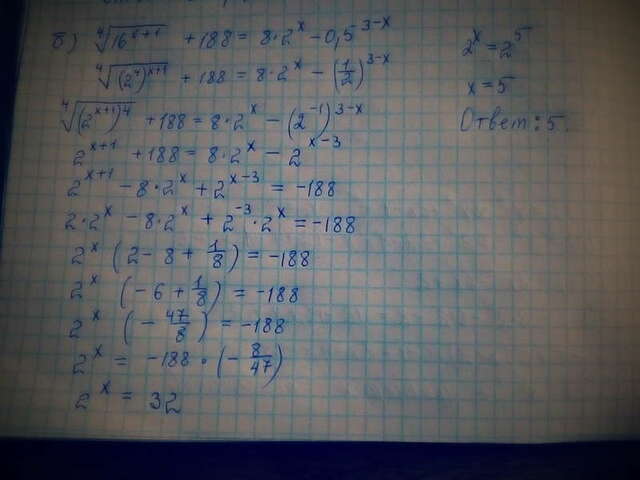 б) ⁴√(16^(x+1)) + 188 = 8·2^x − 0,5^(3−x)
⁴√((2^4)^(x+1)) + 188 = 8·2^x − (1/2)^(3−x)
⁴√((2^(x+1))^4) + 188 = 8·2^x − (2^(−1))^(3−x)
2^(x+1) + 188 = 8·2^x − 2^(x−3)
2^(x+1) − 8·2^x + 2^(x−3) = −188
2·2^x − 8·2^x + 2^(−3)·2^x = −188
2^x (2 − 8 + 1/8) = −188
2^x (−6 + 1/8) = −188
2^x (− 47/8) = −188
2^x = −188 · (− 8/47)
2^x = 32
2^x = 2^5
x = 5
Ответ: 5.